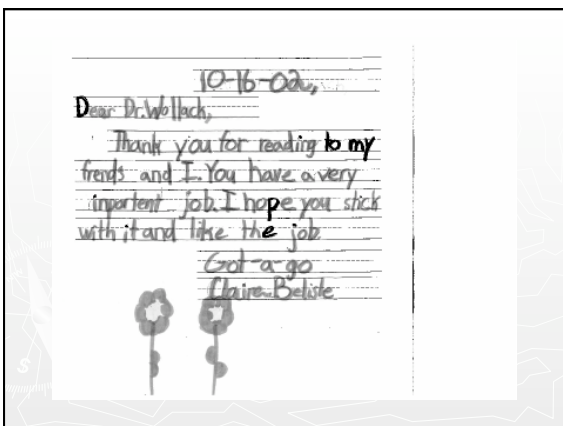 10-16-02,
Dear Dr. Wollack,
Thank you for reading to my
frends and I. You have a very
inportent job. I hope you stick
with it and like the job
Got-a-go
Claire Belisle
S